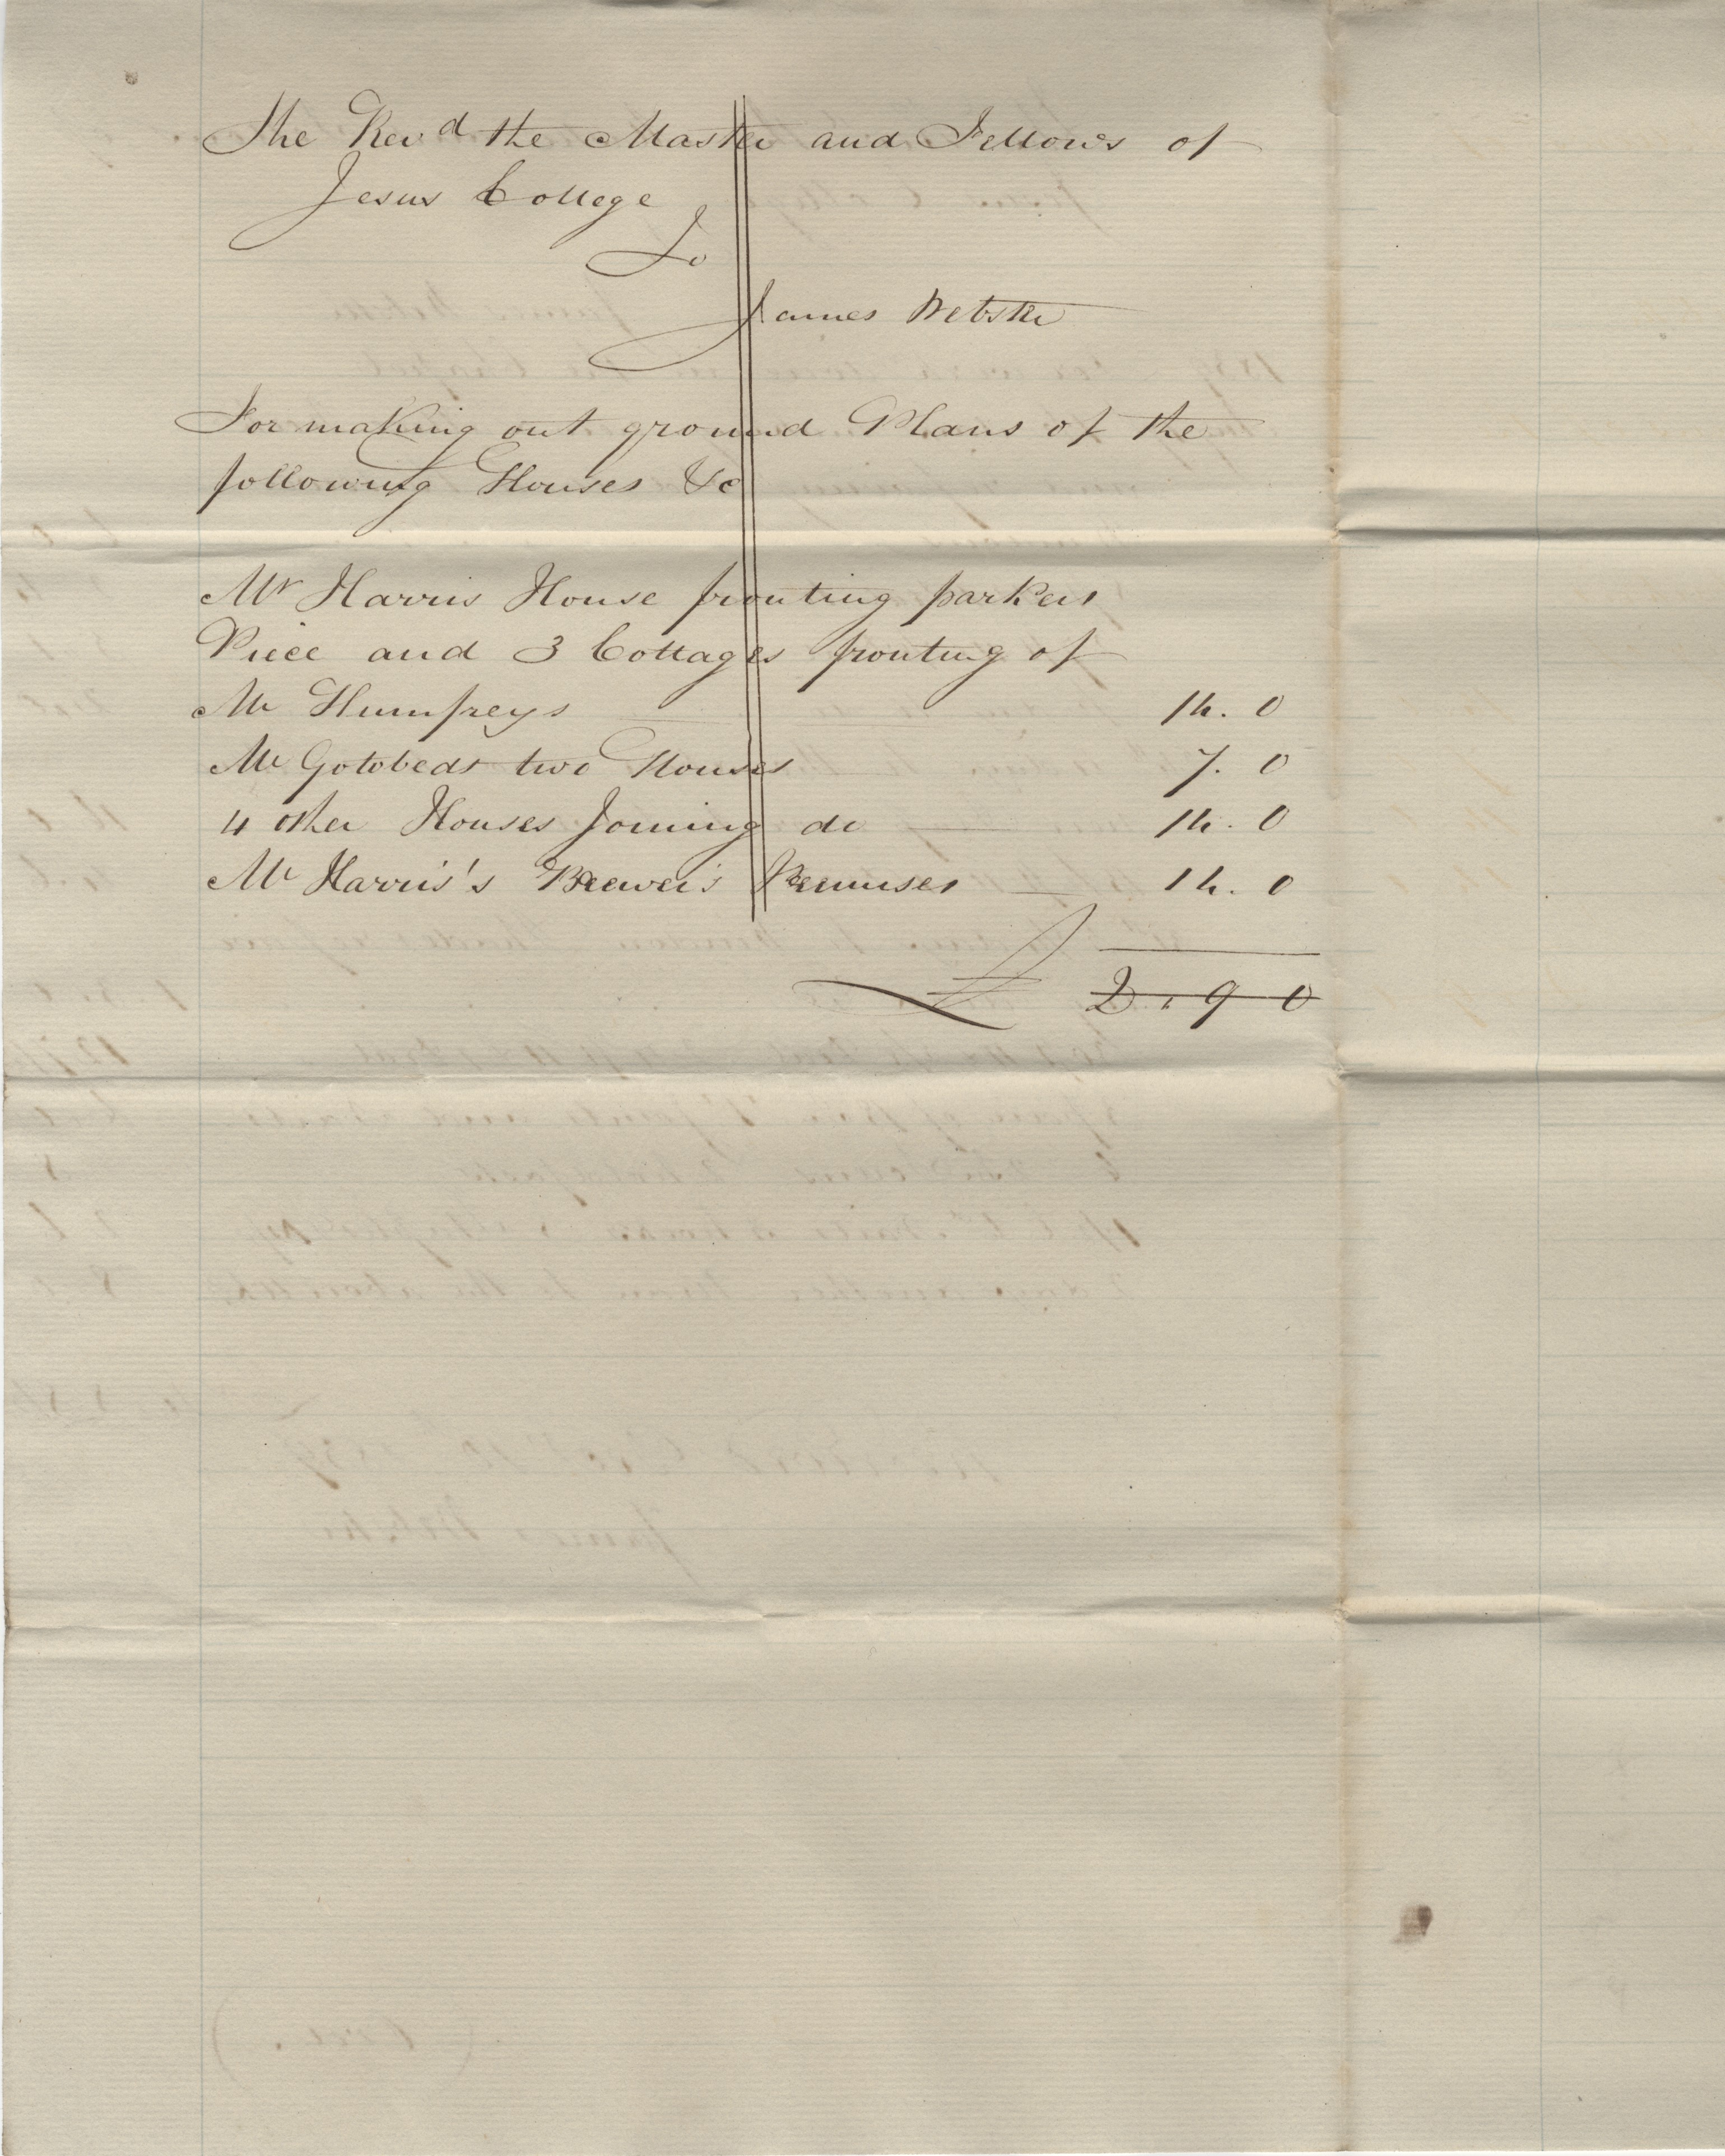 The Revd the Master and Fellows of
Jesus College
To
James Webster
For making out ground Plans of the
following Houses &c
Mr Harris House fronting parkers
Piece and 3 Cottages fronting of
Mr Humfreys 14. 0
Mr Gotobeds two Houses 7. 0
4 other Houses Joining do 14. 0
Mr Harris's Brewer's Premises 14. 0
£ 2. 9 0